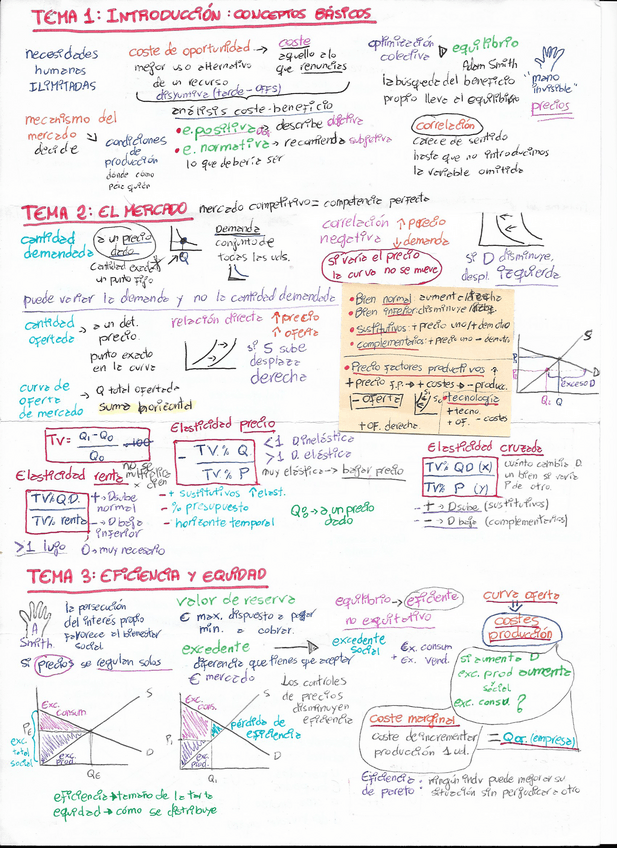 TEMA 1: INTRODUCCIÓN: CONCEPTOS BÁSICOS
necesidades
humanas
ILIMITADAS
coste de oportunidad → coste
mejor uso alternativo
de un recurso
aquello a lo
que renuncias
disyuntiva (trade-OFFS)
análisis coste-beneficio
• e. positiva → describe objetiva
• e. normativa → recomienda subjetiva
lo que debería ser
optimización
colectiva
equilibrio
Adam Smith
la búsqueda del beneficio
propio lleva al equilibrio
"mano
invisible"
precios
mecanismo del
mercado
decide
condiciones
de
producción
dónde cómo
para quién
correlación
carece de sentido
hasta que no introducimos
la variable omitida
TEMA 2: EL MERCADO
mercado competitivo = competencia perfecta
cantidad
demandada
a un precio
dado
Cantidad exacta
un punto fijo
Q
Demanda
conjunto de
todas las uds.
correlación
negativa
↑ precio
↓ demanda
si varía el precio
la curva no se mueve
si D disminuye,
despl. izquierda
puede variar la demanda y no la cantidad demandada
cantidad
ofertada
→ a un det.
precio.
punto exacto
en la curva
relación directa
↑ precio
↑ oferta
si S sube
desplaza
derecha
• Bien normal aumenta
• Bien inferior disminuye
• sustitutivos + precio uno / + dem otro
• complementarios + precio uno
• Precio factores productivos ↑
+ precio f.p. → + costes → - produc.
- oferta
• tecnología
+ tecno
+ OF. - costes
+ OF. derecha.
S
D
exceso D
Q₁ Q
curva de
oferta
de mercado
→ Q total ofertada
Suma horizontal
TV = Q₁ - Q₀
Q₀
· 100
no se
multiplica
x cien
Elasticidad precio
- TV% Q
TV% P
<1 D inelástica
>1 D. elástica
muy elástica → bajar precio
- + sustitutivos ↑ elast.
- % presupuesto
- horizonte temporal
Qº → a un precio
dado
Elasticidad cruzada
TV% QD (x)
TV% P (y)
cuánto cambia D.
un bien si varía
P de otro.
- + → D sube (sustitutivos)
- - → D baja (complementarios)
Elasticidad renta
TV% Q.D.
TV% renta
+ → D sube
normal
- → D baja
inferior
>1 lujo
0 → muy necesario
TEMA 3: EFICIENCIA Y EQUIDAD
A
Smith.
la persecución
del interés propio
favorece al bienestar
social
si precios se regulan solos
valor de reserva
€ max. dispuesto a pagar
min. a cobrar.
excedente
diferencia que tienes que aceptar
€ mercado
equilibrio → eficiente
no equitativo
excedente
social
€x. consum
+ €x. vend.
curva oferta
costes
producción
Los controles
de precios
disminuyen
eficiencia
si aumenta D
exc. prod aumenta
social
exc. consu. ?
Exc.
consum
S
PE
exc.
total
social
exc.
prod.
D
QE
Exc.
cons.
S
P₁
pérdida de
eficiencia
exc.
prod.
D
Q₁
coste marginal
coste de incrementar
producción 1 ud.
= QOF. (empresa)
eficiencia → tamaño de la tarta
equidad → cómo se distribuye
Eficiencia
de pareto
: ningún indv puede mejorar su
situación sin perjudicar a otro